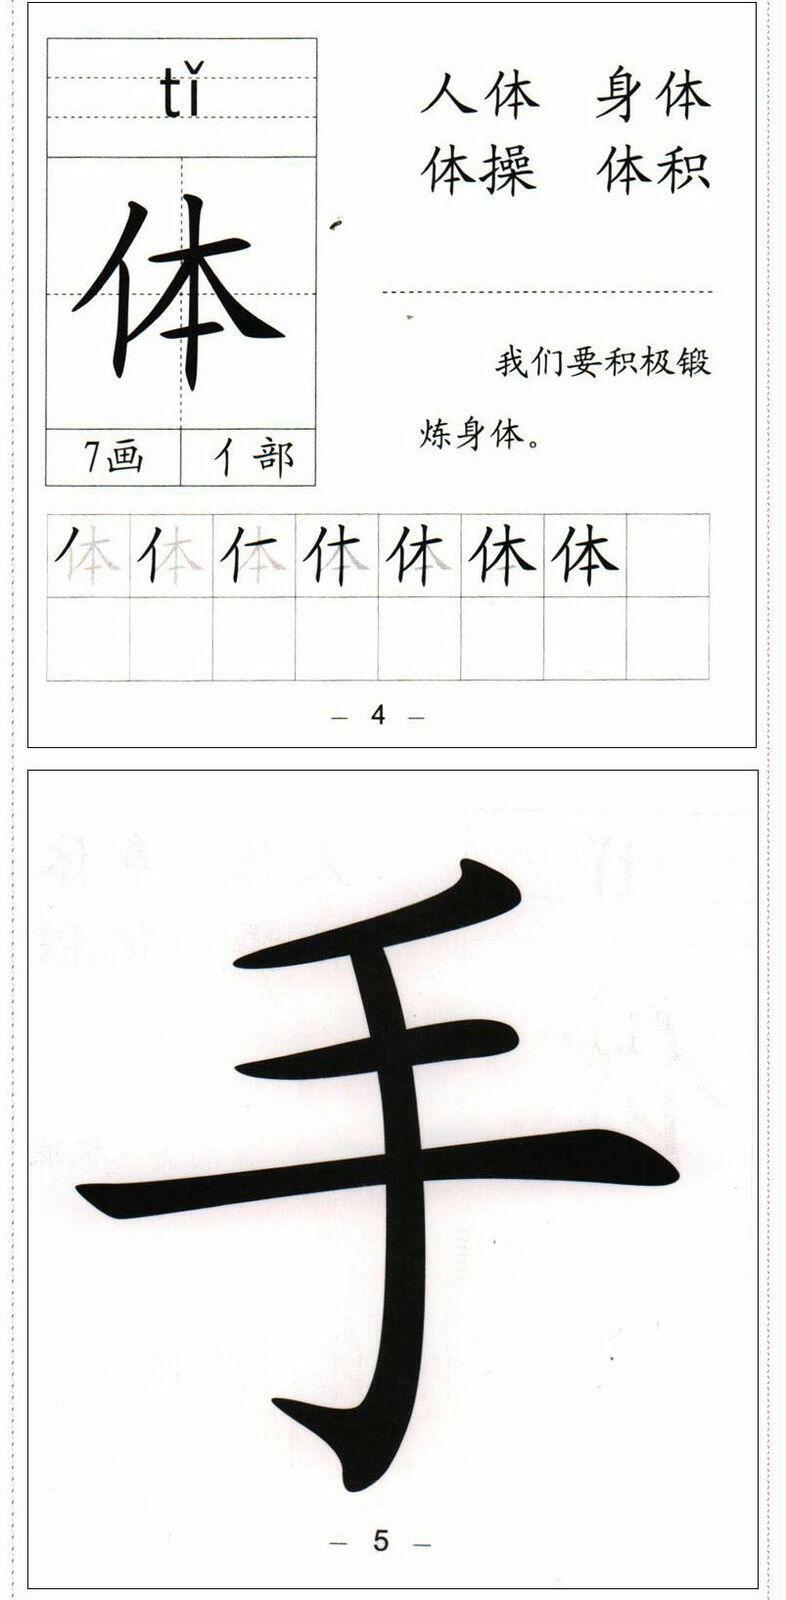 tǐ
体
7画 亻部
人体 身体
体操 体积
我们要积极锻
炼身体。
体 体 体 体 体 体 体
– 4 –
手
– 5 –